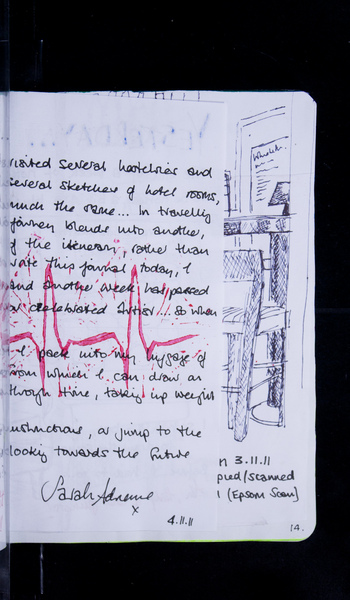 visited several hostelries and
several sketches of hotel rooms,
much the same... In travelling
journey blends into another,
of the itinerary, rather than
wrote this journal today, I
and another week has passed
a celebrated Artist... so when
I pack into my luggage of
from which I can draw as
through time, taking up weight
instructions, or jump to the
looking towards the future
Sarah
x
4.11.11
n 3.11.11
pied/scanned
1 (Epson Scan)
14.